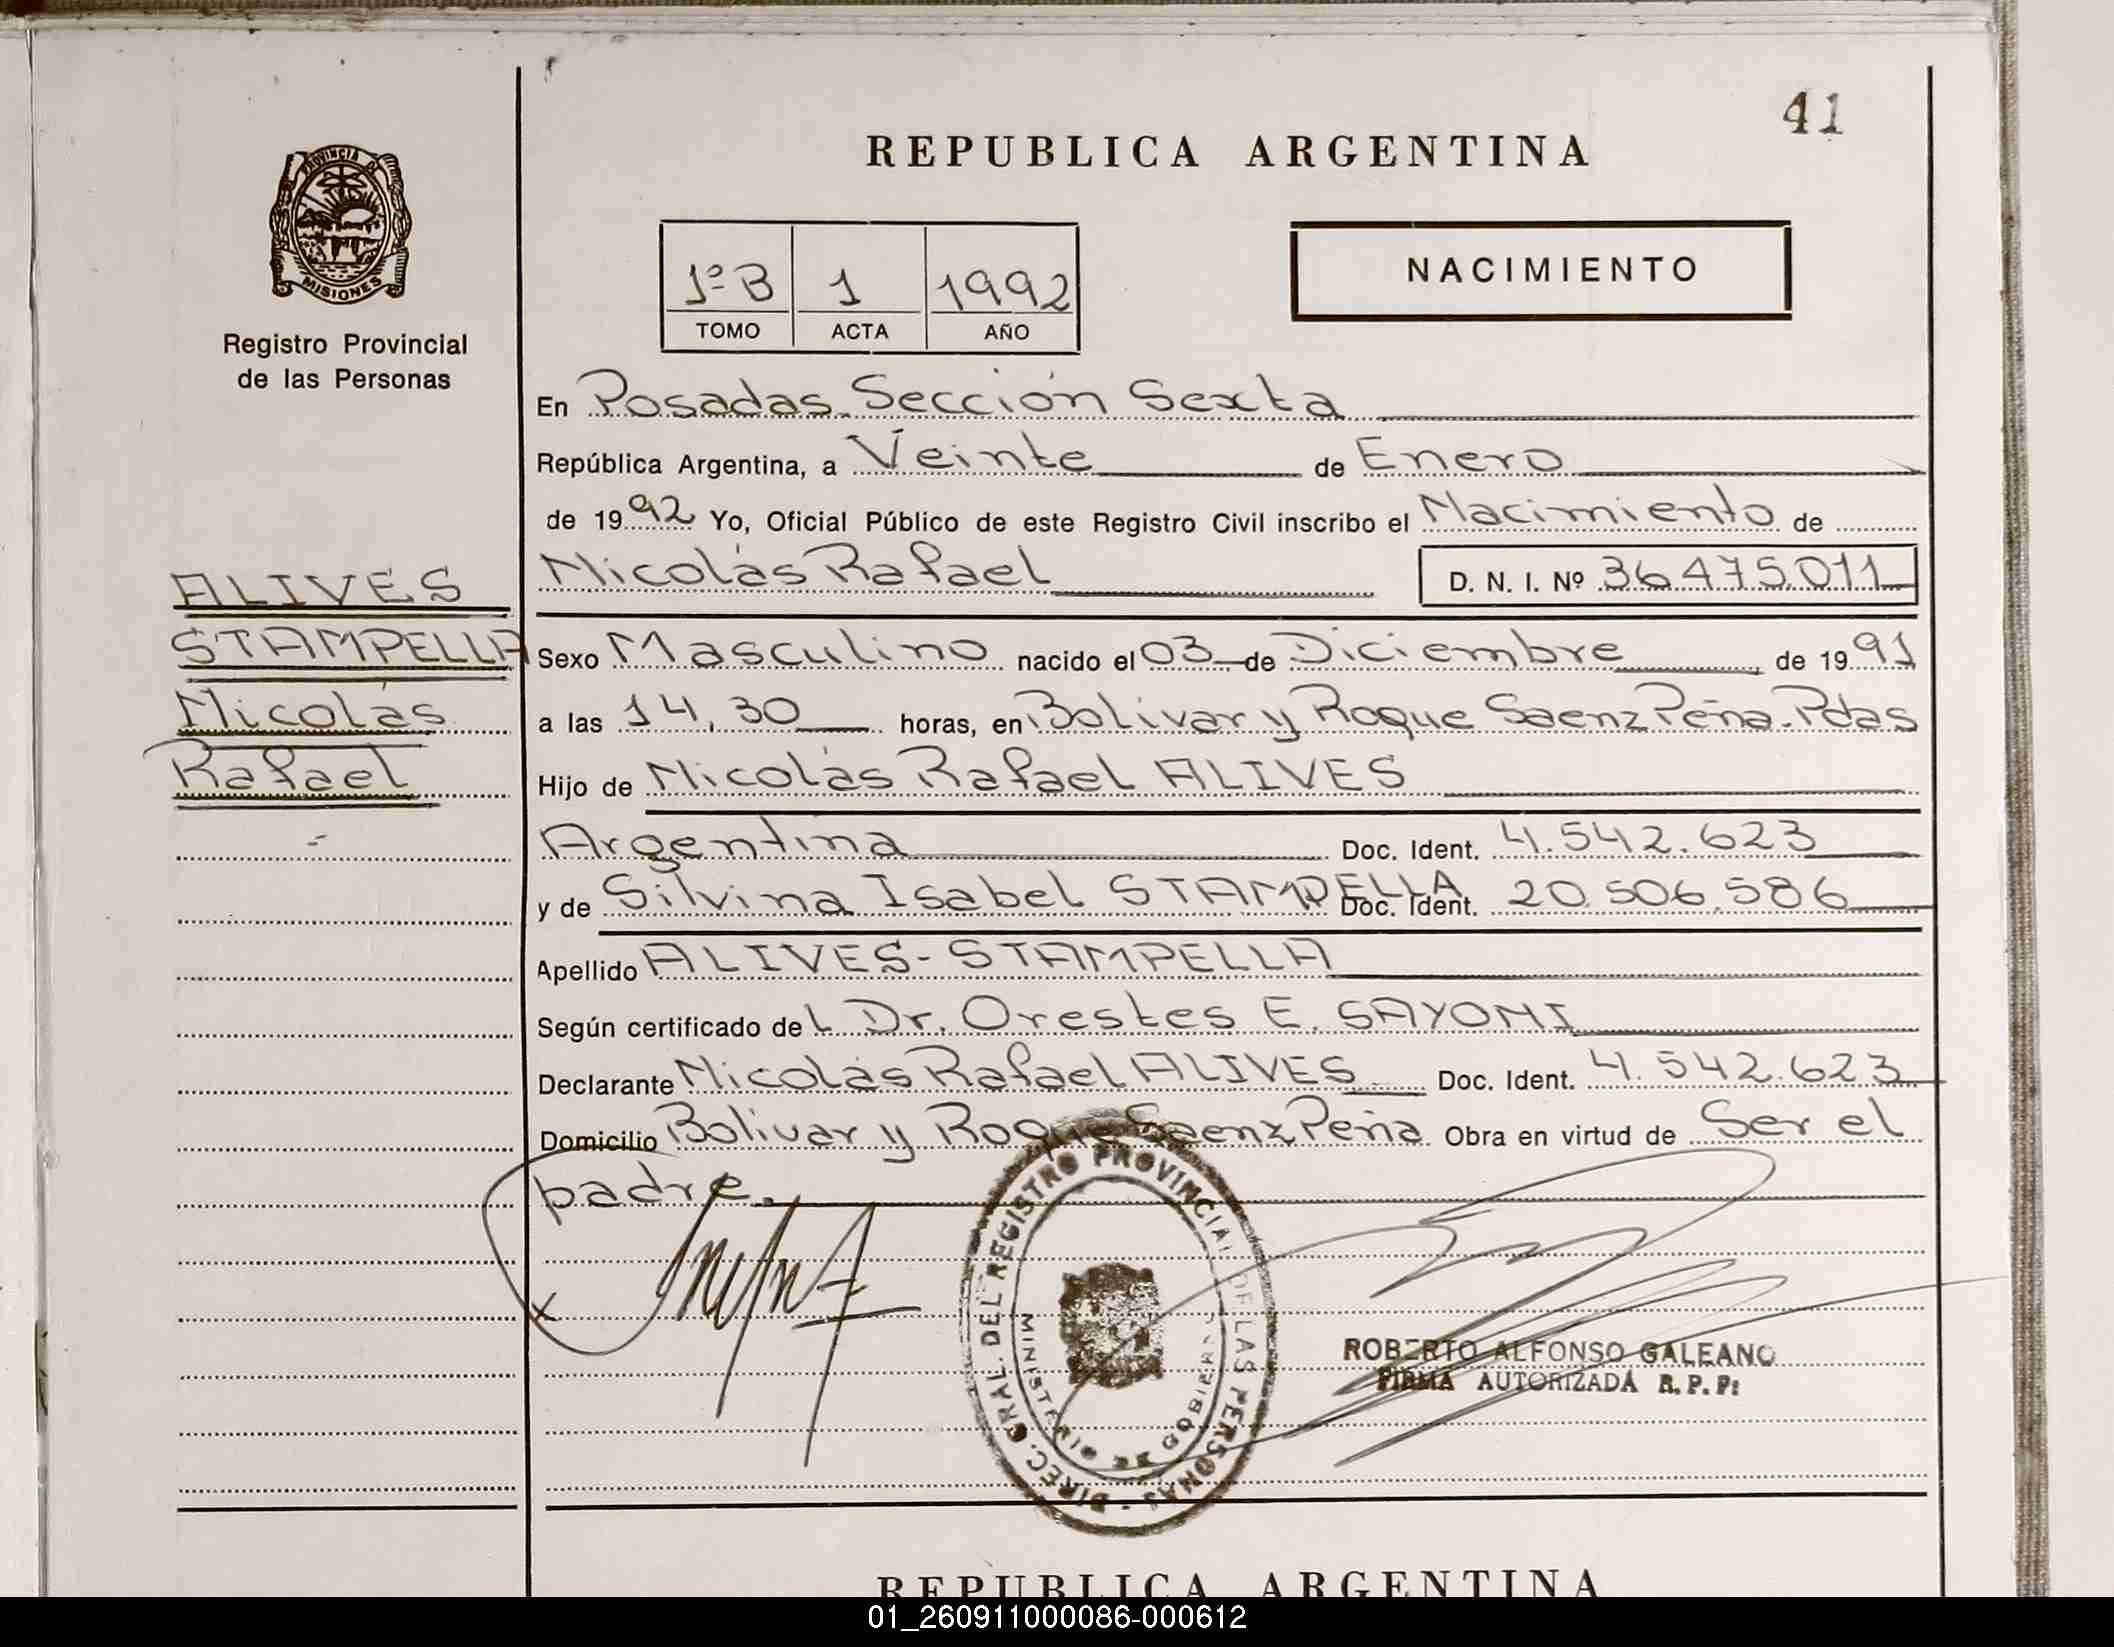 41
REPUBLICA ARGENTINA
PROVINCIA DE
MISIONES
Registro Provincial
de las Personas
1º B 1 1992
TOMO ACTA AÑO
NACIMIENTO
En Posadas. Sección Sexta
República Argentina, a Veinte de Enero
de 1992 Yo, Oficial Público de este Registro Civil inscribo el Nacimiento de
Nicolás Rafael D. N. I. Nº 36.475.011
ALIVES
STAMPELLA
Nicolás
Rafael
Sexo Masculino nacido el 03 de Diciembre de 1991
a las 14,30 horas, en Bolivar y Roque Saenz Peña. Pdas
Hijo de Nicolás Rafael ALIVES
Argentina Doc. Ident. 4.542.623
y de Silvina Isabel STAMPELLA Doc. Ident. 20.506.586
Apellido ALIVES - STAMPELLA
Según certificado del Dr. Orestes E. SAYONI
Declarante Nicolás Rafael ALIVES Doc. Ident. 4.542.623
Domicilio Bolivar y Roque Saenz Peña Obra en virtud de Ser el
padre.
DIREC. GRAL. DEL REGISTRO PROVINCIAL DE LAS PERSONAS
MINISTERIO DE GOBIERNO
ROBERTO ALFONSO GALEANO
FIRMA AUTORIZADA R. P. P.
REPUBLICA ARGENTINA
01_260911000086-000612